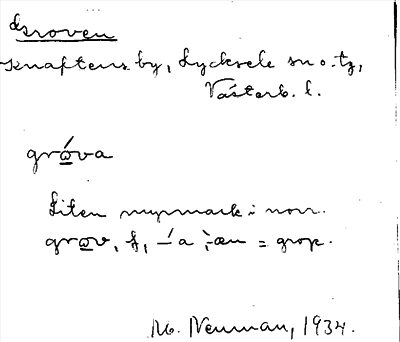 Groven
Knaftens by, Lycksele sn o. tg,
Västerb. l.
grώ̲va
Liten myrmark i norr.
grω̲v, f, –́a, –̀æn = grop.
M. Neuman, 1934.